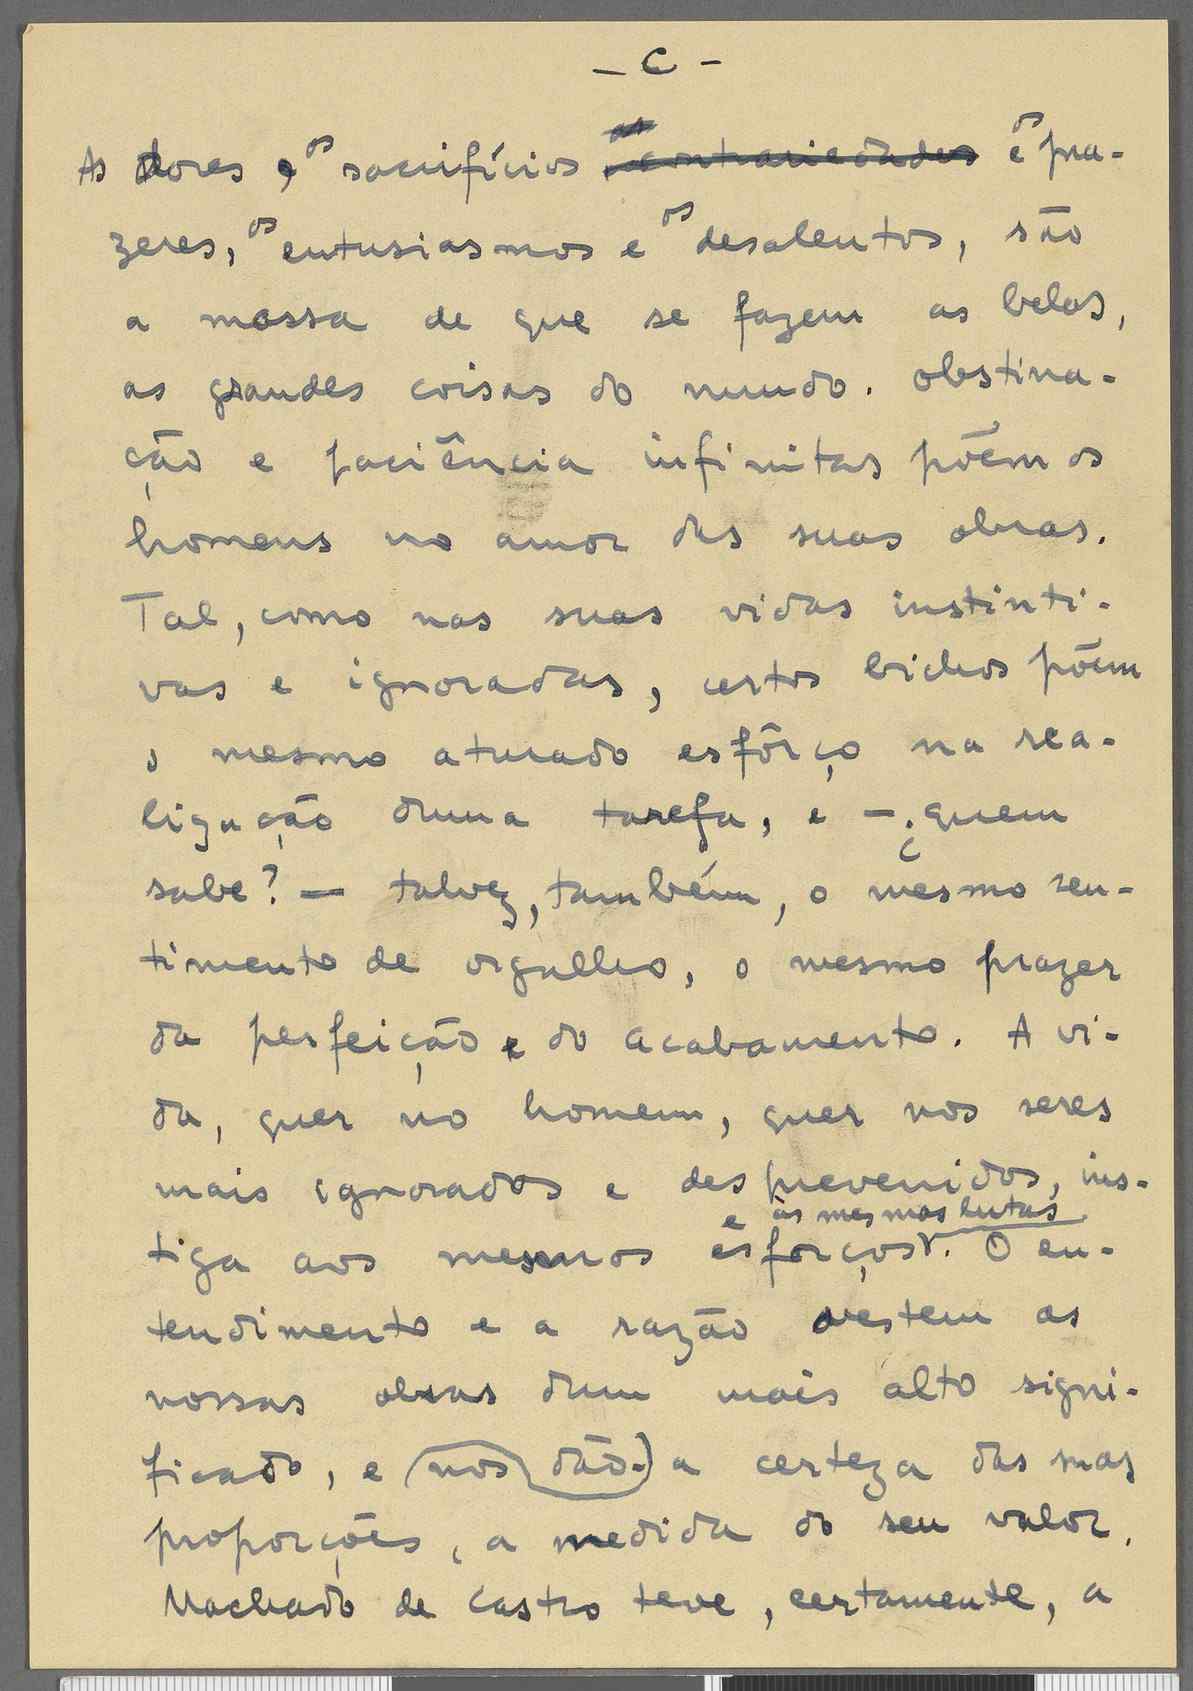 - C -
As dores e os sacrifícios as contrariedades e os pra-
zeres, os entusiasmos e os desalentos, são
a massa de que se fazem as belas,
as grandes coisas do mundo. Obstina-
ção e paciência infinitas põem os
homens no amor das suas obras.
Tal, como nas suas vidas instinti-
vas e ignoradas, certos bichos põem
o mesmo aturado esfôrço na rea-
lização duma tarefa, e — ¿quem
sabe? — talvez, também, o mesmo sen-
timento de orgulho, o mesmo prazer
da perfeição e do acabamento. A vi-
da, quer no homem, quer nos seres
mais ignorados e desprevenidos, ins-
e às mesmas lutas
tiga aos mesmos esforços. O en-
tendimento e a razão vestem as
nossas obras dum mais alto signi-
ficado, e nos dão-a certeza das suas
proporções, a medida do seu valor.
Machado de Castro teve, certamente, a